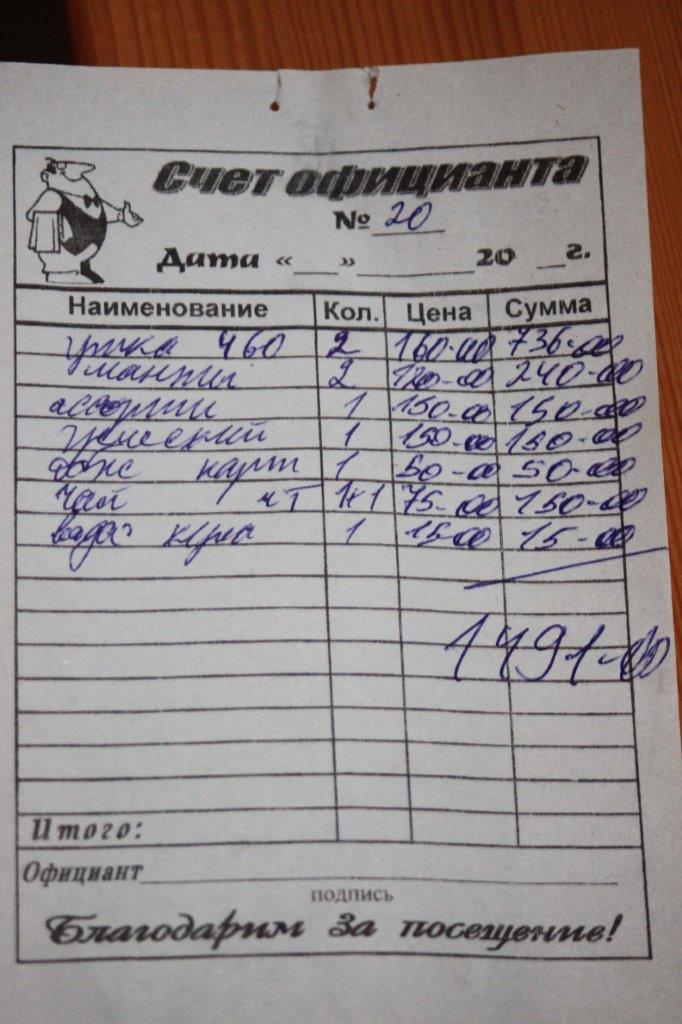 Счет официанта
№ 20
Дата «___»__________20 __г.
Наименование Кол. Цена Сумма
утка 460 2 160-00 736-00
манты 2 120-00 240-00
ассорти 1 150-00 150-00
1 150-00 150-00
карт 1 50-00 50-00
чай 1+1 75-00 150-00
вода 1 15-00 15-00
1491-00
Итого:
Официант
подпись
Благодарим за посещение!